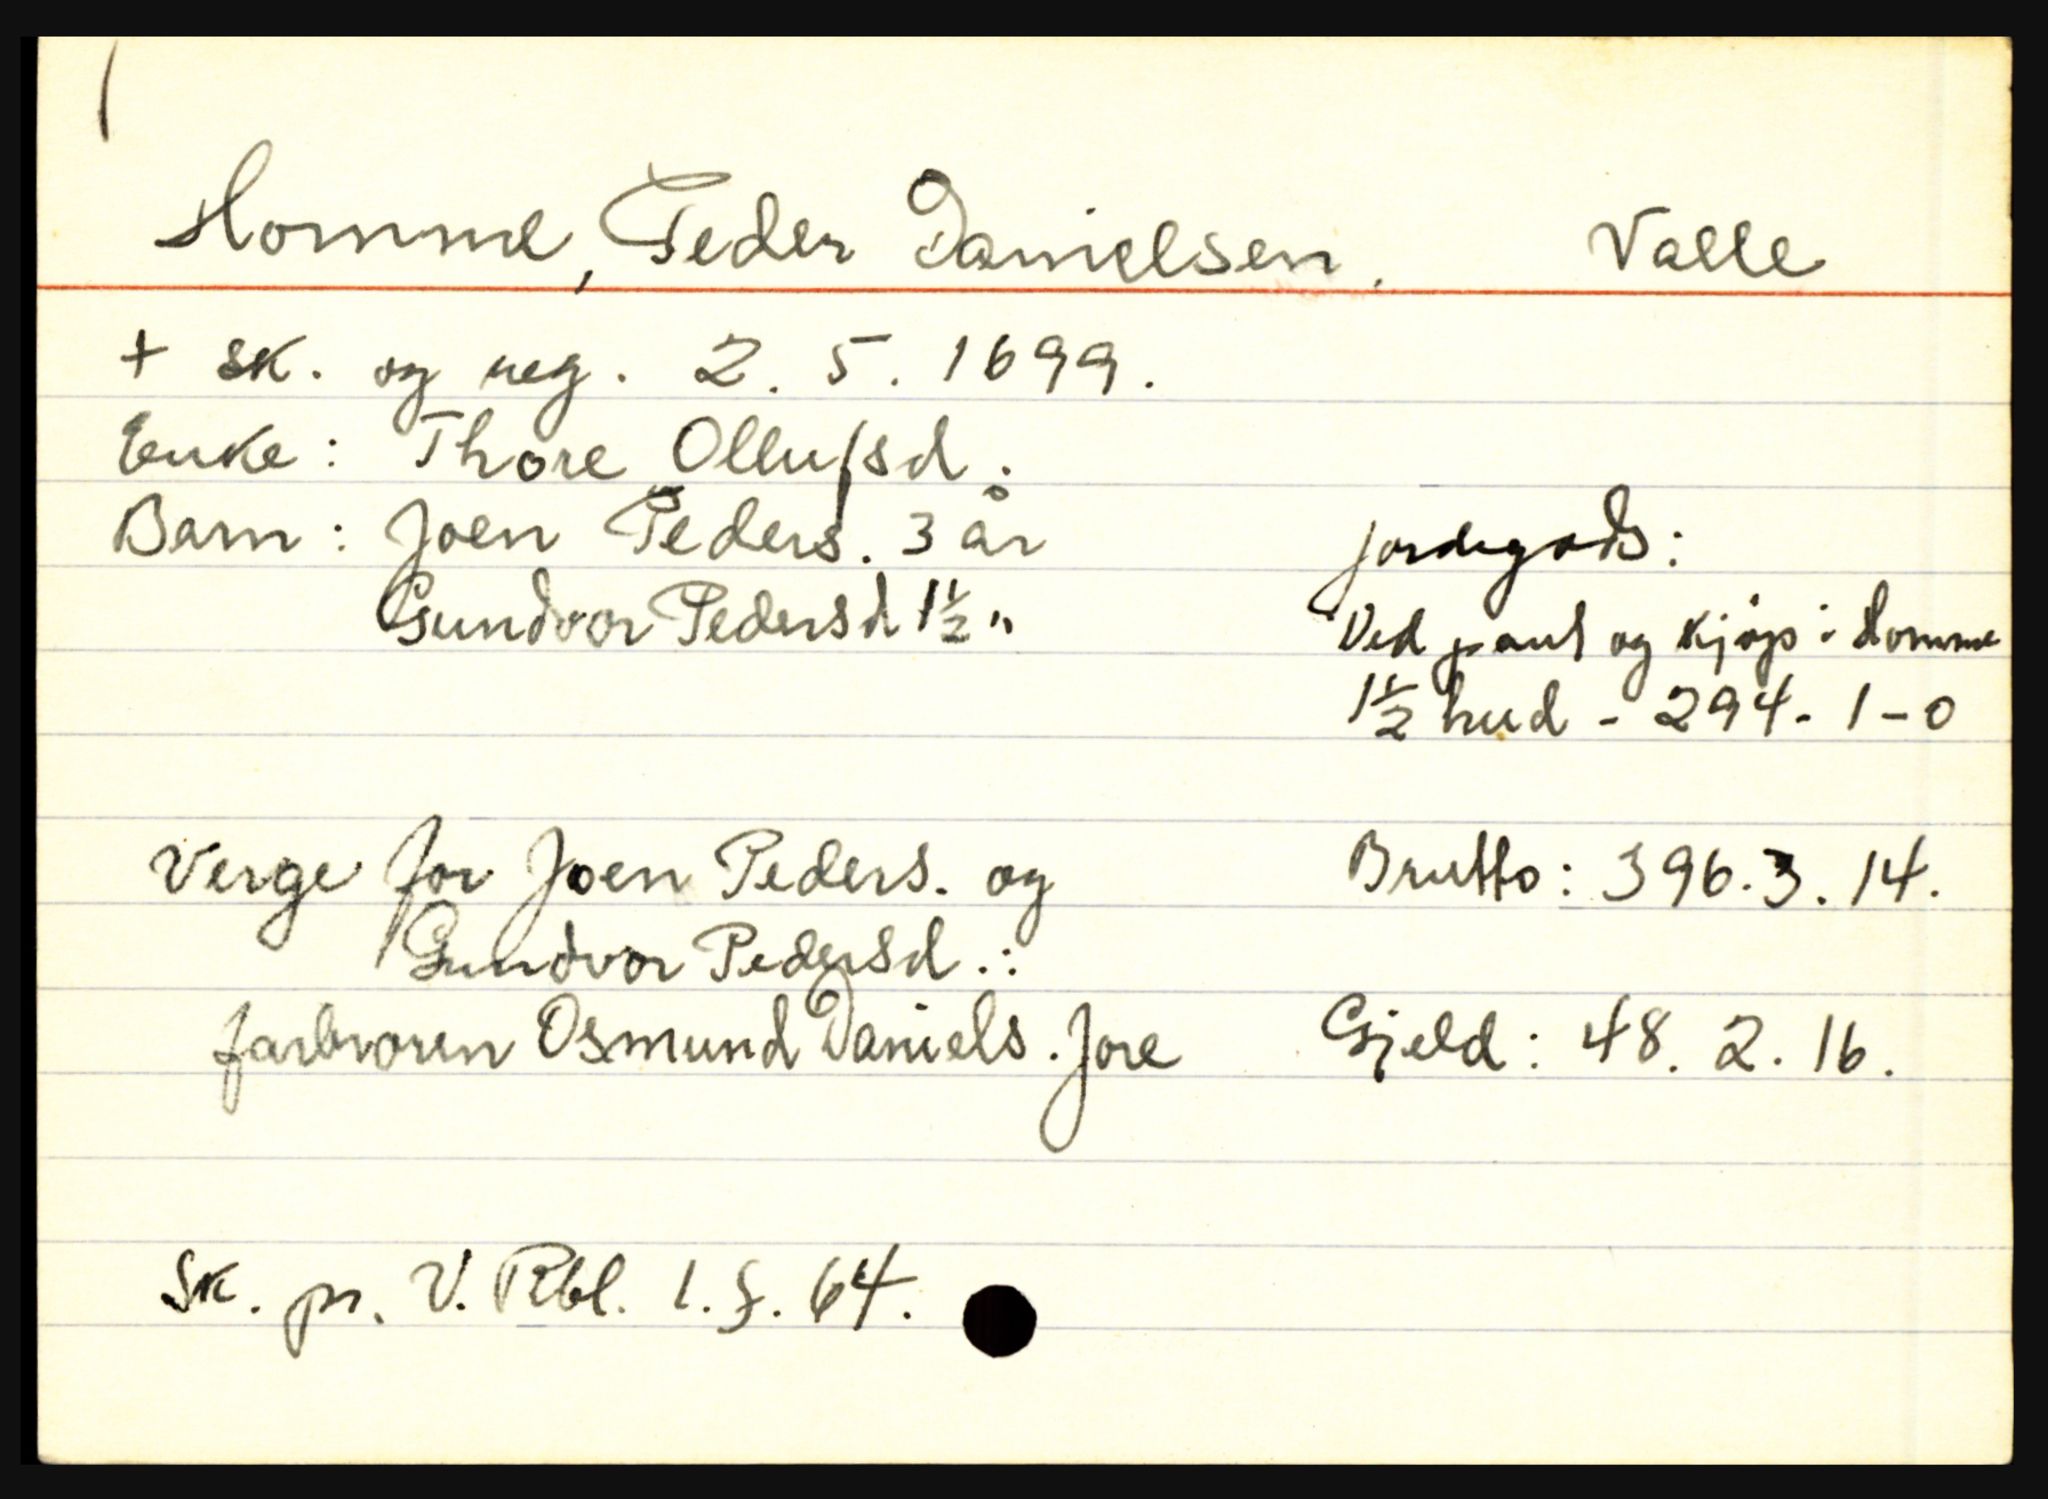 Homme, Peder Danielsen. Valle
+ sk. og reg. 2. 5. 1699.
Enke: Thore Ollufsd.
Barn: Joen Peders. 3 år
Gundvor Pedersd 1½ "
jordegods:
Ved pant og kjøp i Homme
1½ hud - 294 - 1 - 0
Verge for Joen Peders. og
Gundvor Pedersd.:
farbroren Osmund Daniels. Jore
Brutto: 396. 3. 14.
Gjeld: 48. 2. 16.
Sk. pr. V. Rbl. 1. §. 64.